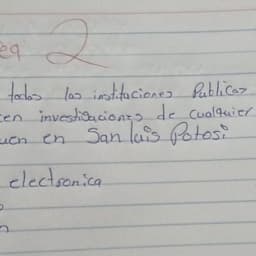 ea 2
todas las instituciones Publicas
cen investigaciones de cualquier
uen en San luis Potosi
electronica